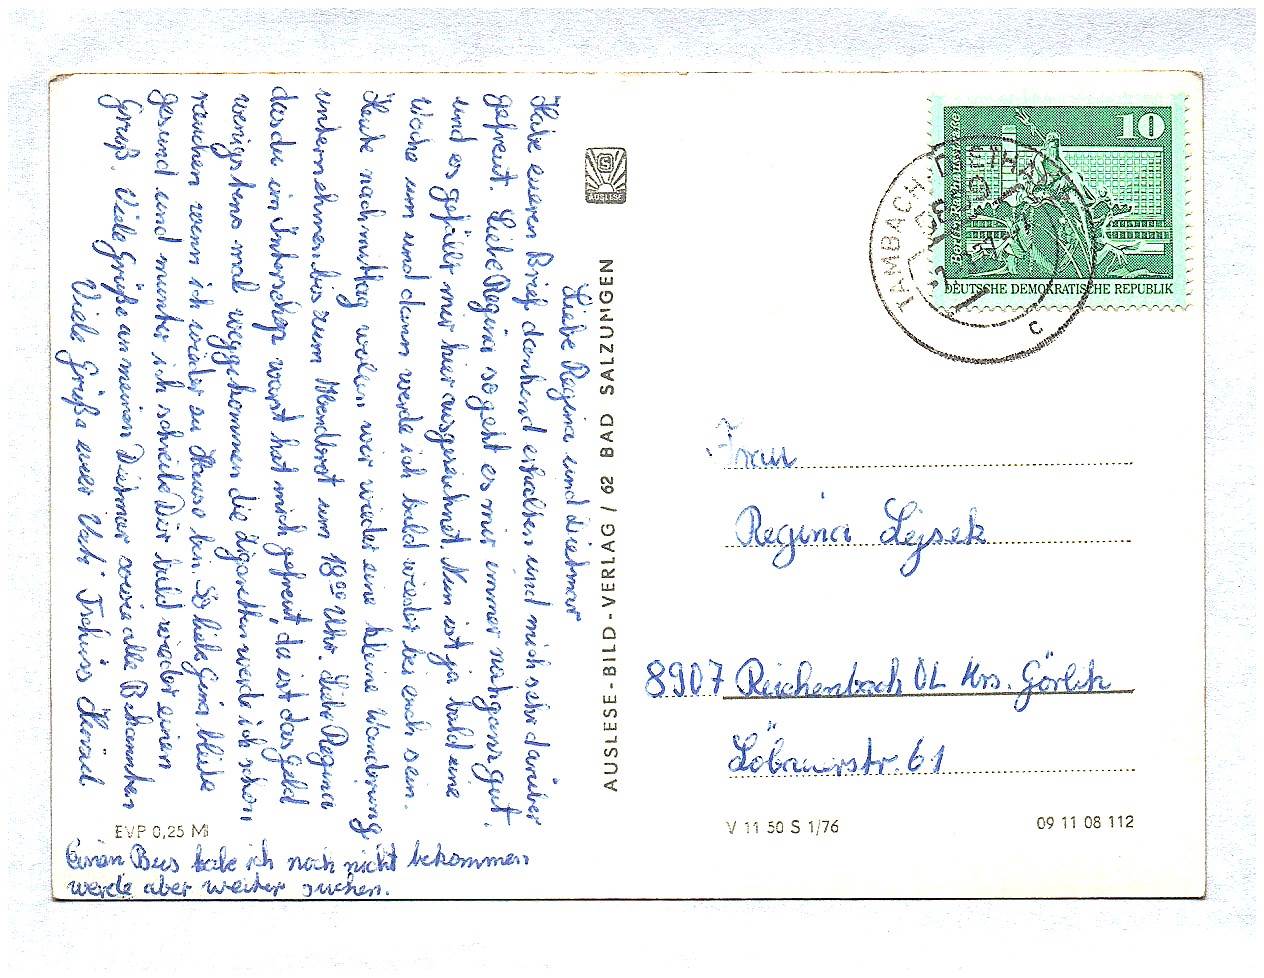 Liebe Regina und Dietmar
Habe eueren Brief dankend erhalten und mich sehr darüber
gefreut. Liebe Regina so geht es mir immer noch ganz gut.
und es gefällt mir hier ausgezeichnet. Nun ist ja bald eine
Woche um und dann werde ich bald wieder bei euch sein.
Heute nachmittag wollen wir wieder eine kleine Wanderung
unternehmen bis zum Abendbrot um 18 00 Uhr. Liebe Regina
das du im Intershop warst hat mich gefreut, da ist das Geld
wenigstens mal weggekommen die Zigaretten werde ich schon
rauchen wenn ich wieder zu Hause bin. So liebe Gina bleibe
gesund und munter ich schreibe Dir bald wieder einen
Gruß. Viele Grüße an meinen Dietmar sowie alle Bekannten
Viele Grüße euer Vati Tschüss
Einen Bus habe ich noch nicht bekommen
werde aber weiter suchen.
EVP 0,25 M
AUSLESE
AUSLESE-BILD-VERLAG / 62 BAD SALZUNGEN
10
DEUTSCHE DEMOKRATISCHE REPUBLIK
TAMBACH-DIETHARZ
C
Frau
Regina Lejsek
8907 Reichenbach OL Krs. Görlitz
Löbauerstr. 61
V 11 50 S 1/76
09 11 08 112